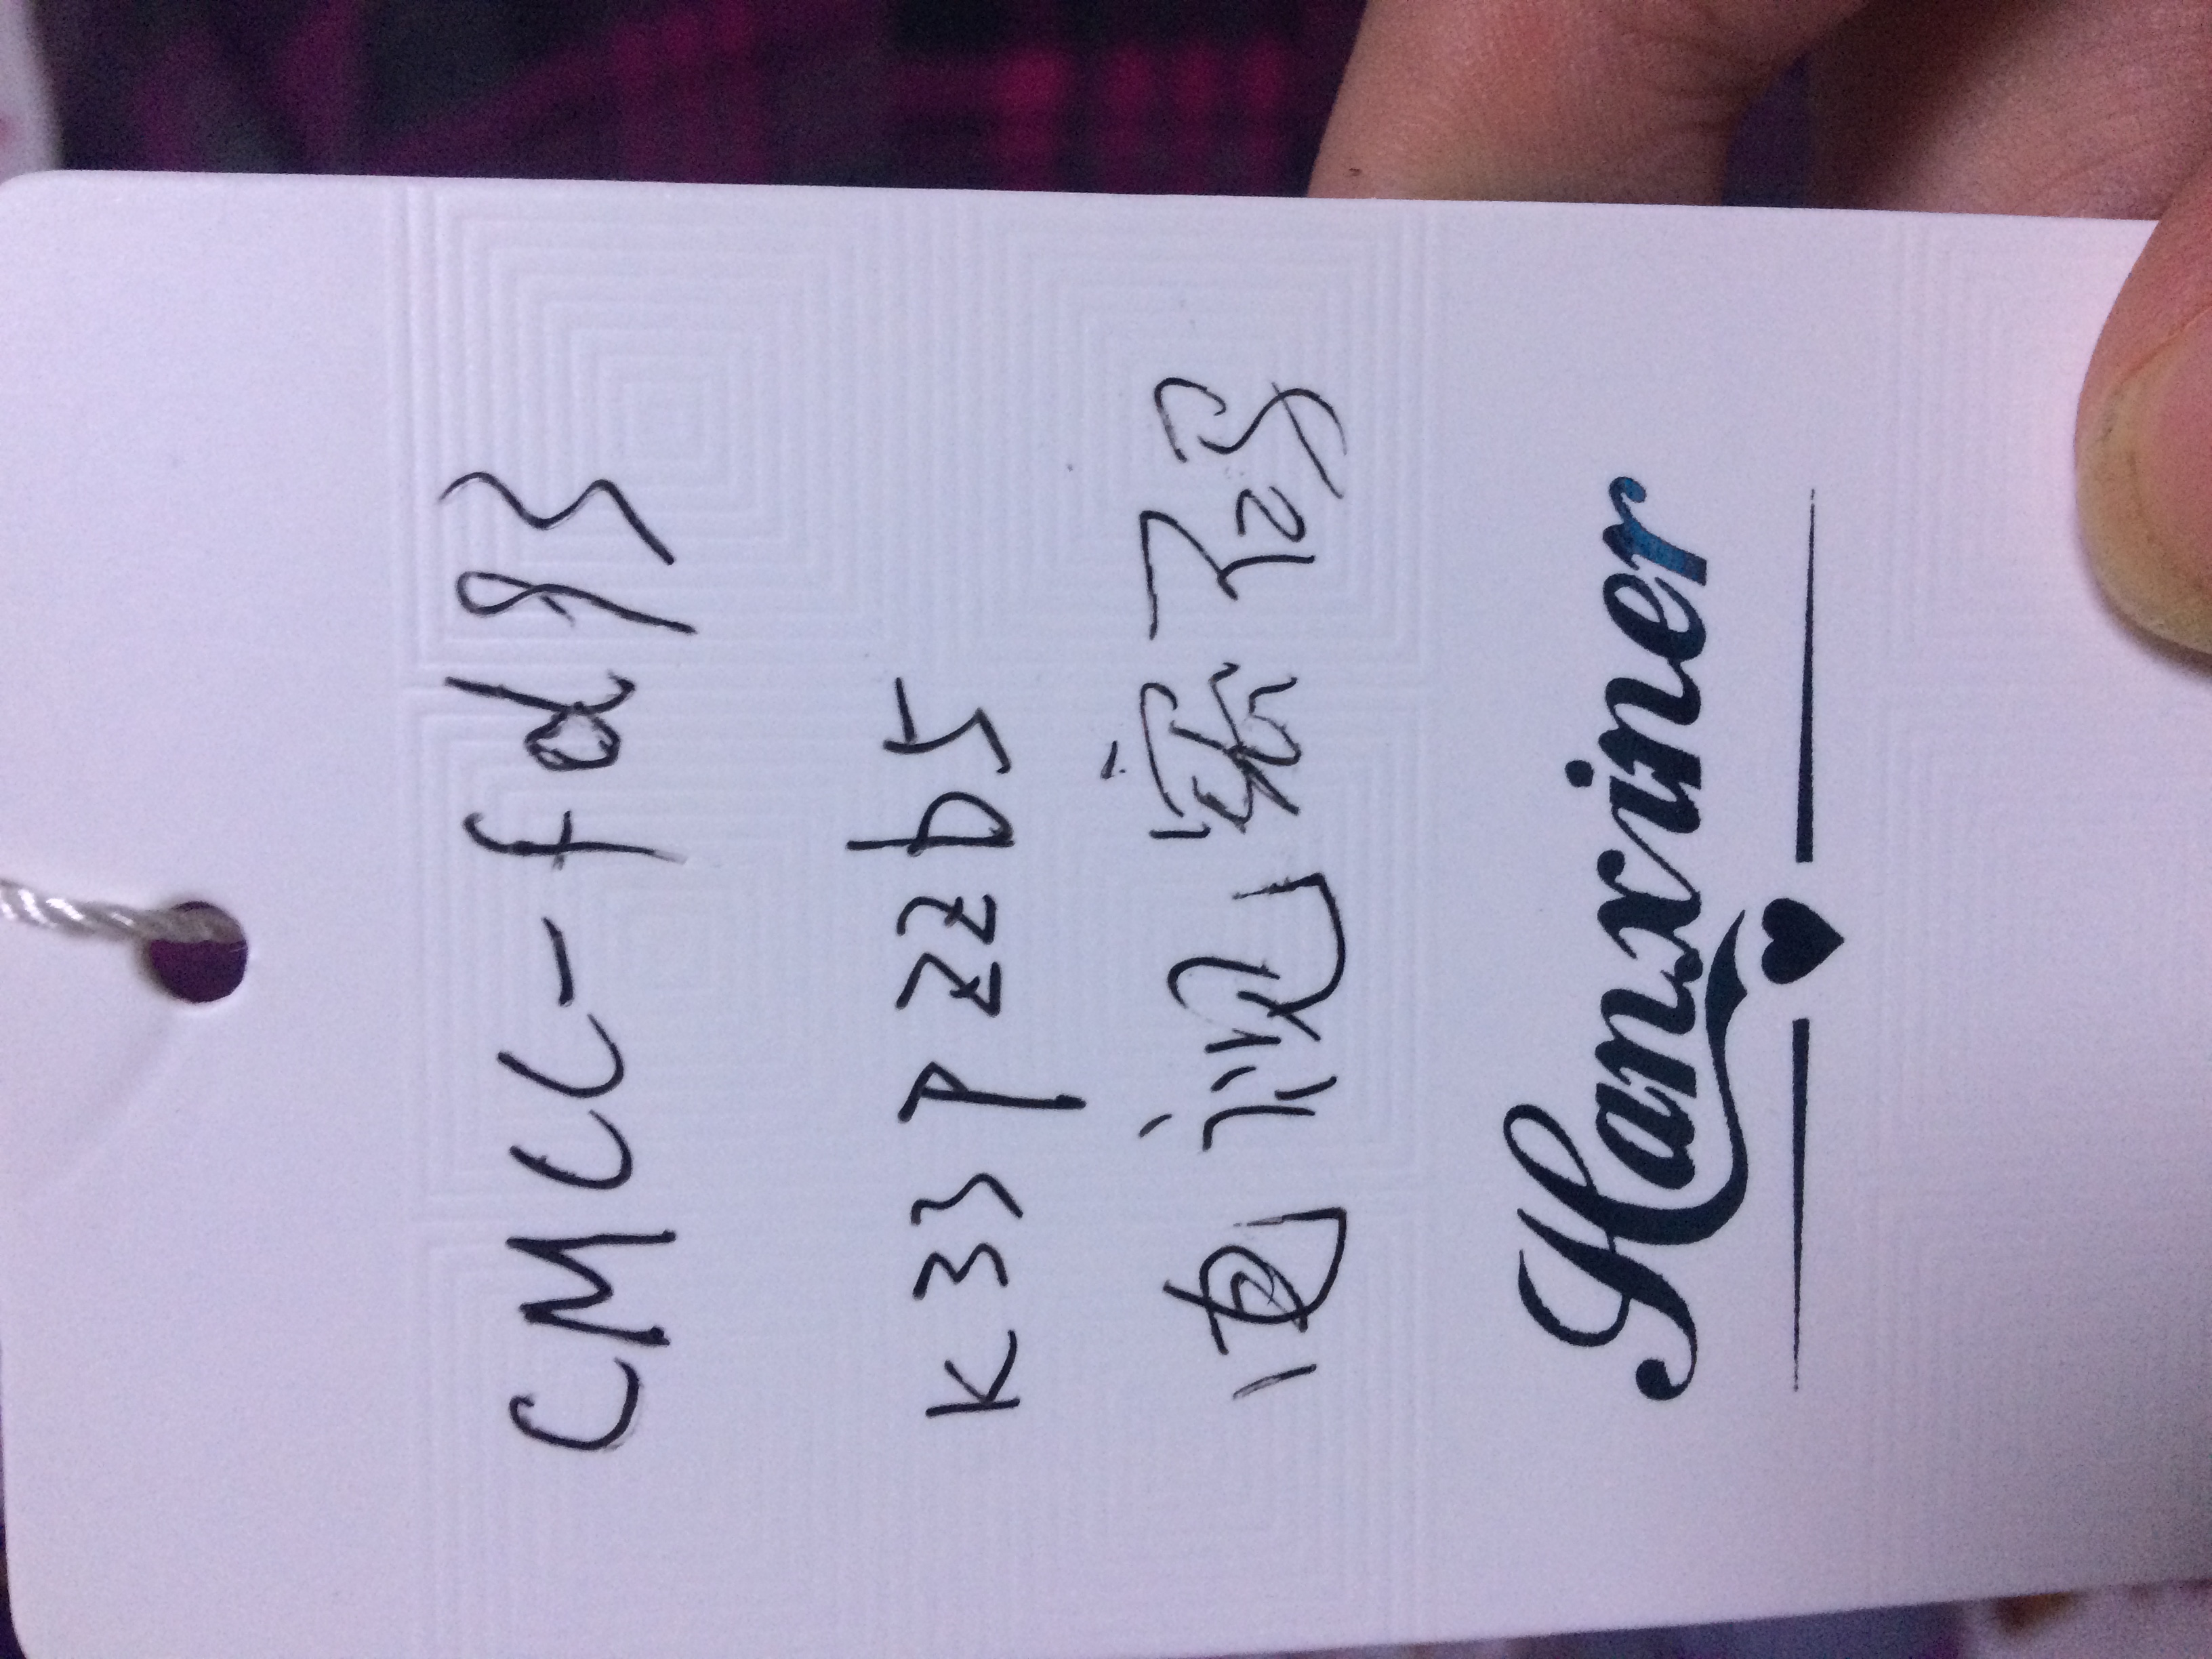 CMCC-fd93
K33pzzb5
电视密码
Hanxiner